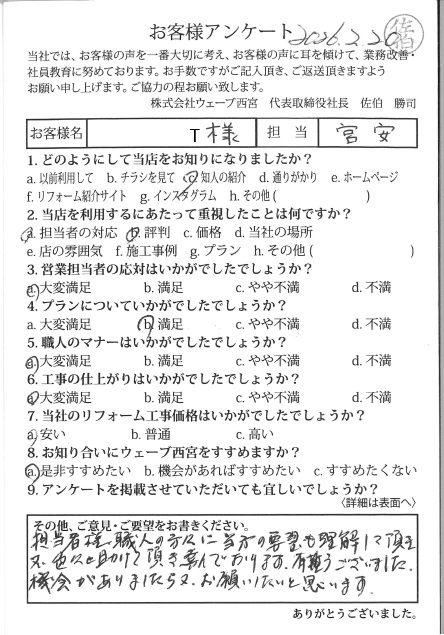 お客様アンケート 2026.2.20 佐伯
当社では、お客様の声を一番大切に考え、お客様の声に耳を傾けて、業務改善・
社員教育に努めております。お手数ですがご記入頂き、ご返送頂きますよう
お願い申し上げます。ご協力の程お願い致します。
株式会社ウェーブ西宮 代表取締役社長 佐伯 勝司
お客様名 T様 担当 宮安
1. どのようにして当店をお知りになりましたか?
a. 以前利用して b. チラシを見て c. 知人の紹介 d. 通りがかり e. ホームページ
f. リフォーム紹介サイト g. インスタグラム h. その他( )
2. 当店を利用するにあたって重視したことは何ですか?
a. 担当者の対応 b. 評判 c. 価格 d. 当社の場所
e. 店の雰囲気 f. 施工事例 g. プラン h. その他( )
3. 営業担当者の応対はいかがでしたでしょうか?
a. 大変満足 b. 満足 c. やや不満 d. 不満
4. プランについていかがでしたでしょうか?
a. 大変満足 b. 満足 c. やや不満 d. 不満
5. 職人のマナーはいかがでしたでしょうか?
a. 大変満足 b. 満足 c. やや不満 d. 不満
6. 工事の仕上がりはいかがでしたでしょうか?
a. 大変満足 b. 満足 c. やや不満 d. 不満
7. 当社のリフォーム工事価格はいかがでしたでしょうか?
a. 安い b. 普通 c. 高い
8. お知り合いにウェーブ西宮をすすめますか?
a. 是非すすめたい b. 機会があればすすめたい c. すすめたくない
9. アンケートを掲載させていただいても宜しいでしょうか?
〈詳細は表面へ〉
その他、ご意見・ご要望をお書きください。
担当者様、職人の方々に当方の要望も理解して頂き
又、色々と助けて頂き喜んでおります。有難うございました。
機会がありましたら又、お願いしたいと思います。
ありがとうございました。